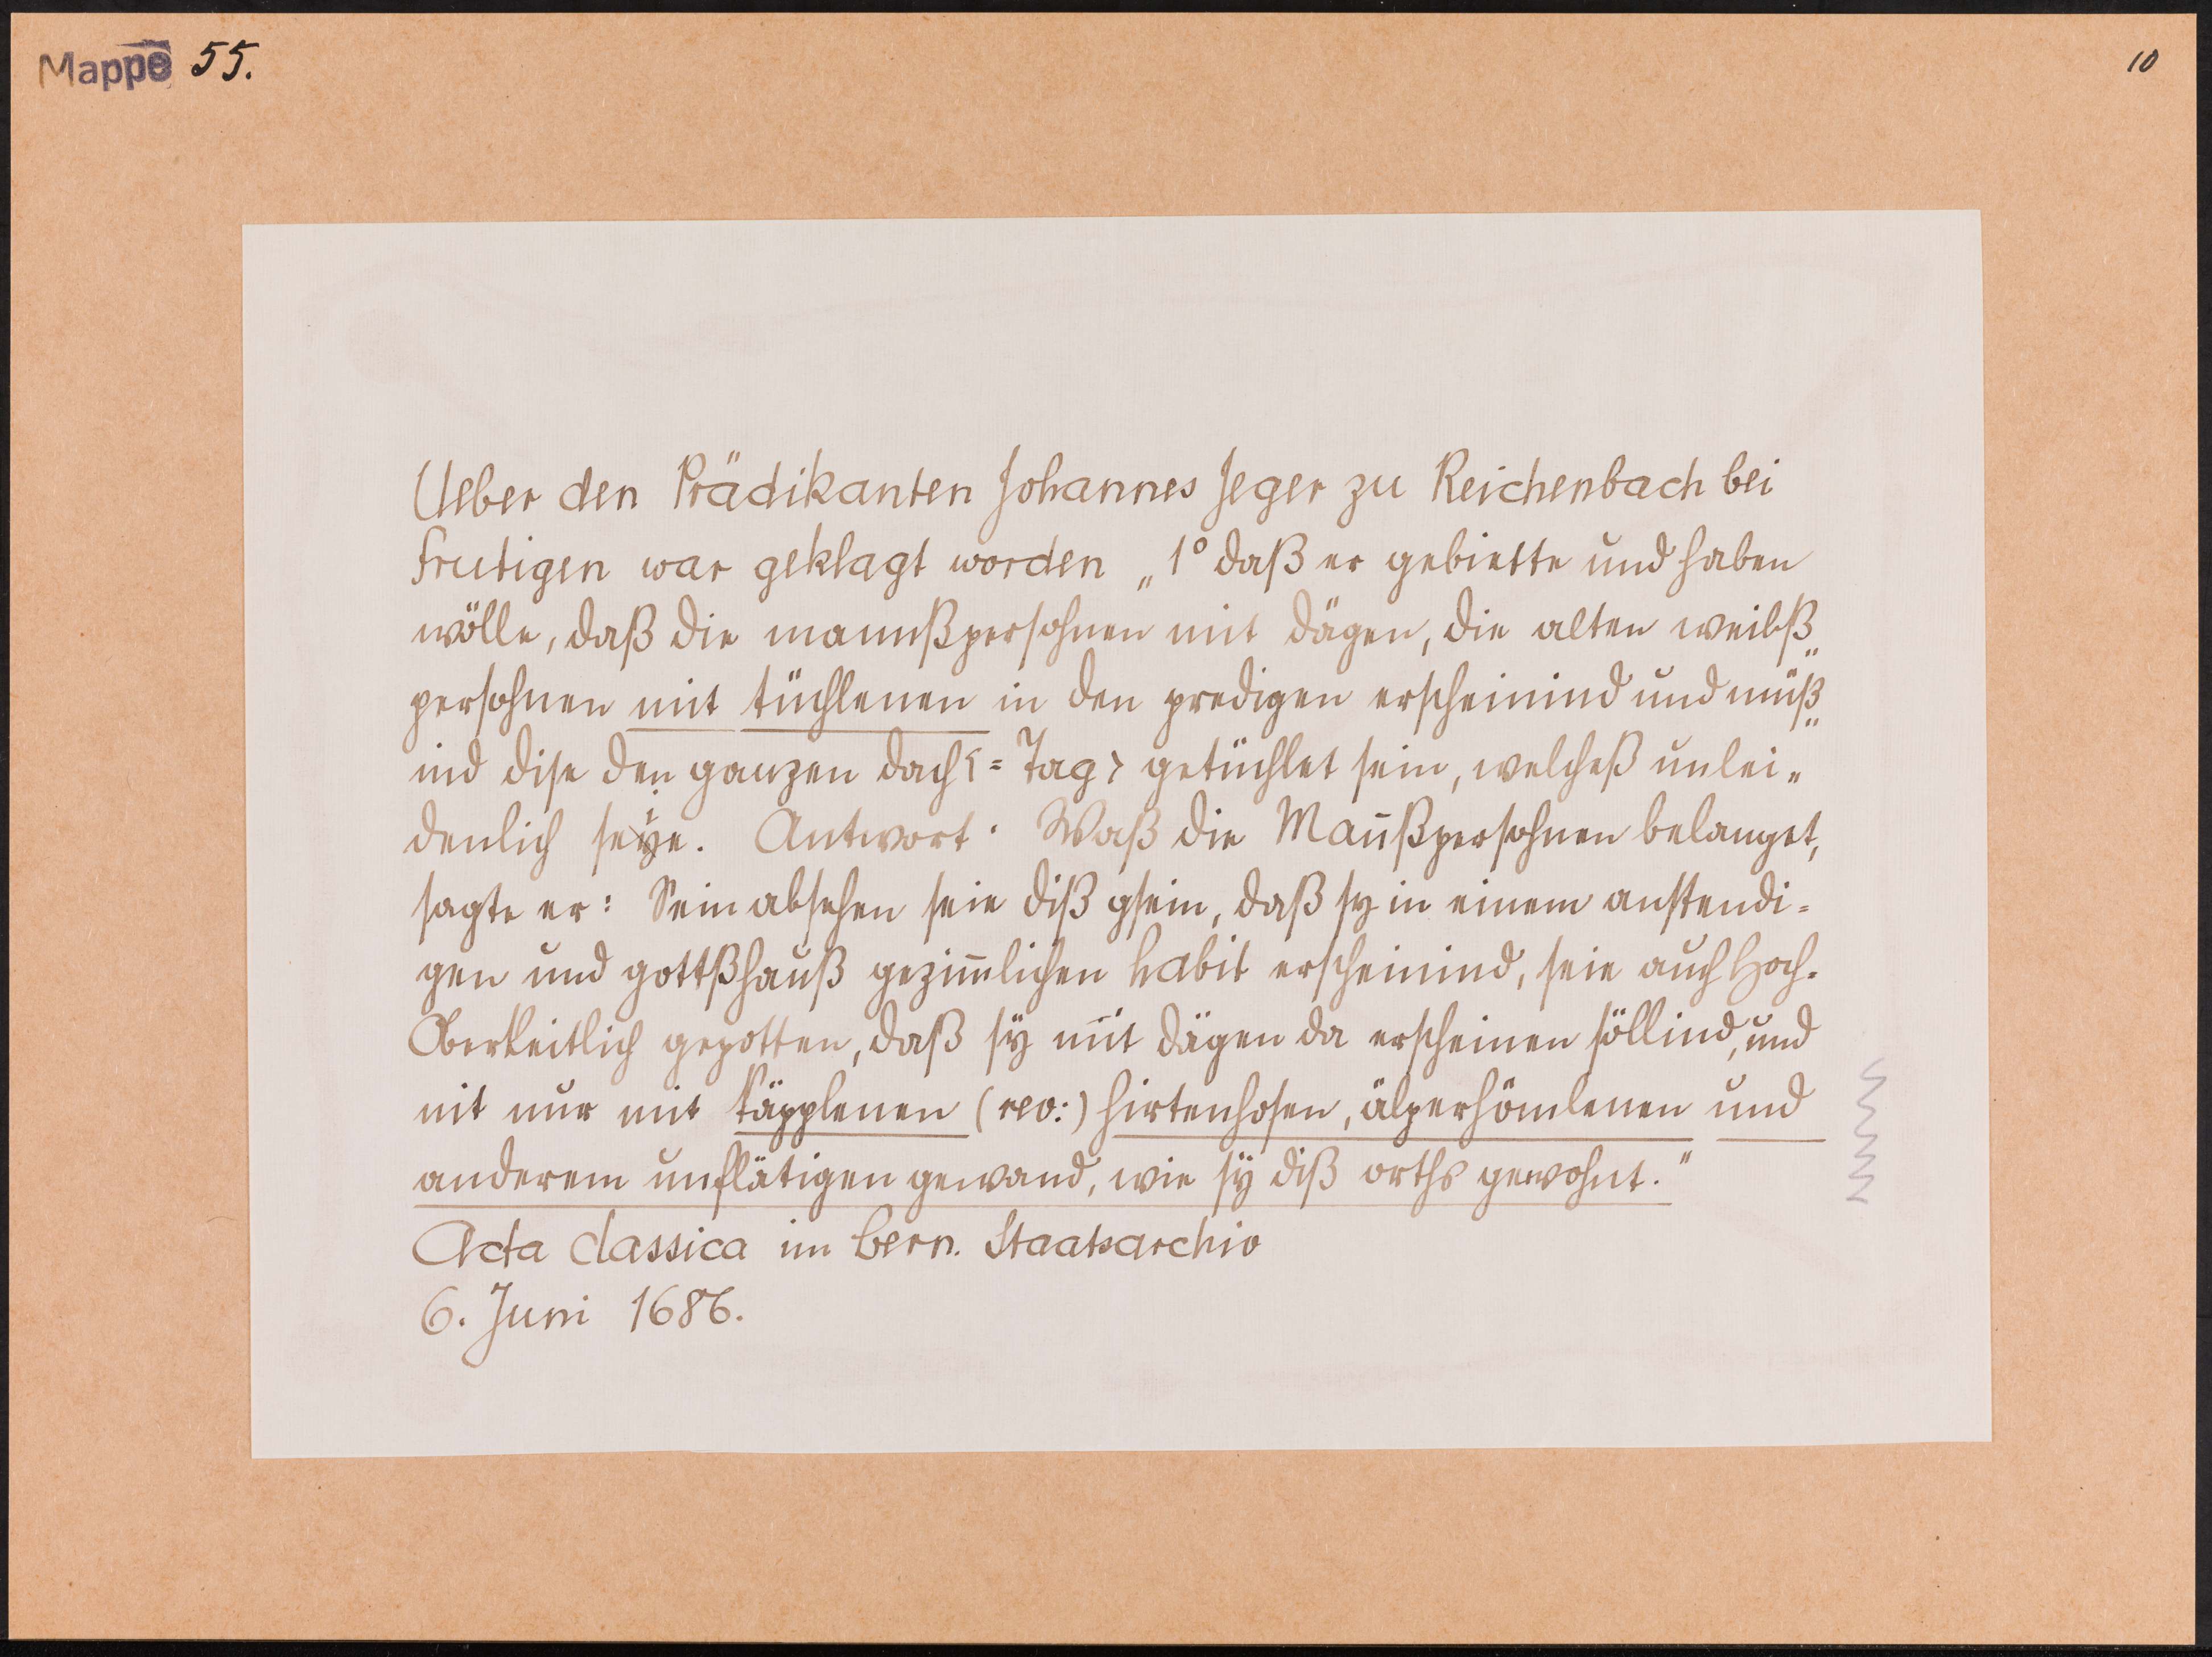 Mappe 55.
10
Ueber den Prädikanten Johannes Jeger zu Reichenbach bei
Frutigen war geklagt worden „1° daß er gebiette und haben
wölle, daß die mannßpersohnen mit dägen, die alten weibß„
persohnen mit tüchlenen in den predigen erscheinind und müß„
ind dise den ganzen dach <= Tag> getüchlet sein, welcheß unlei„
denlich seye. Antwort: Waß die Man̄ßpersohnen belanget,
sagte er: Sein absehen seie diß gsein, daß sy in einem anstendi-
gen und gottßhauß gezim̄lichen habit erscheinind, seie auch Hoch-
Oberkeitlich gepotten, daß sÿ mit dägen da erscheinen söllind, und
nit nur mit käpplenen (rev:) hirtenhosen, älperhömlenen und
anderem unflätigen gewand, wie sÿ diß orths gewohnt."
Acta classica im bern. Staatsarchiv
6. Juni 1686.